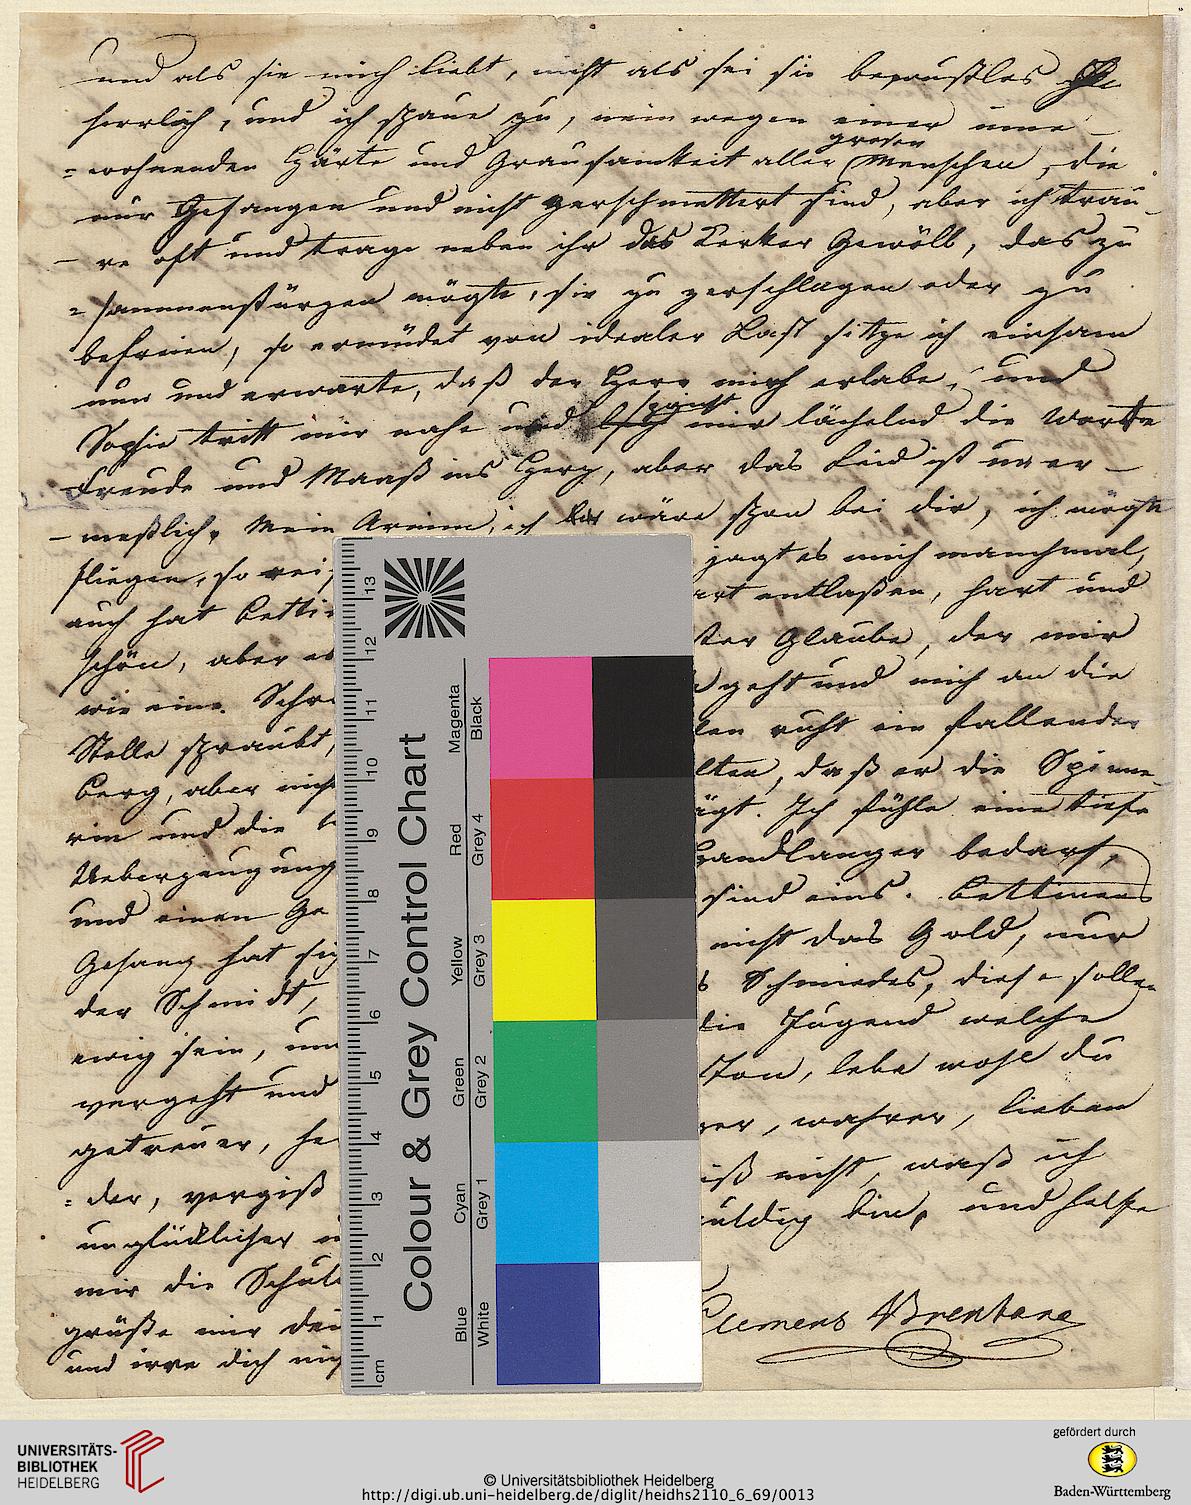 und als sie mich liebt, nicht als sei sie bewustlos
herrlich, und ich schaue zu, nein wegen einer inne
=wohnenden Härte und Grausamkeit aller grosen Menschen, die
nur Gefangen und nicht zerschmettert sind, aber ich trau-
-re oft und trage neben ihr das Kerker Gewölb, das zu
=sammenstürzen mögte, sie zu zerschlagen oder zu
befreien, so ermüdet von idealer Last sitze ich einsam
nun und erwarte, daß der Herr mich erlabe, und
Sophie tritt mir nahe und spricht mir lächelnd die Worte
Freude und Maaß ins Herz, aber das Leid ist uner-
-meßlich. Mein Arnim, ich wäre schon bei dir, ich mögte
fliegen, so rei
jagt es mich manchmal,
auch hat Betti
art entlaßen, hart und
schön, aber es
ster Glaube, der mir
wie eine Schr
geht und mich an die
Stelle schraubt,
len ruht ein fallender
Berg, aber nicht
lten, daß er die Spinne-
rin und die
ägt. Ich fühle eine tiefe
Ueberzeugung
Handlanger bedarf,
und einen Ge
sind eins. Bettinens
Gesang hat sich
nicht das Gold, nur
der Schmidt,
s Schmiedes, diese sollen
ewig sein, und
die Jugend welche
vergeht und
ston, lebe wohl du
getreuer, he
rer, wahrer, lieben
=der, vergiß
iß nicht, waß ich
unglücklicher
uldig bin, und helfe
mir die Schul
grüße mir dei
Clemens Brentano
und irre dich nicht
Colour & Grey Control Chart
Magenta
Black
Red
Grey 4
Yellow
Grey 3
Green
Grey 2
Cyan
Grey 1
Blue
White
13
12
11
10
9
8
7
6
5
4
3
2
1
cm
UNIVERSITÄTS-
BIBLIOTHEK
HEIDELBERG
© Universitätsbibliothek Heidelberg
http://digi.ub.uni-heidelberg.de/diglit/heidhs2110_6_69/0013
gefördert durch
Baden-Württemberg